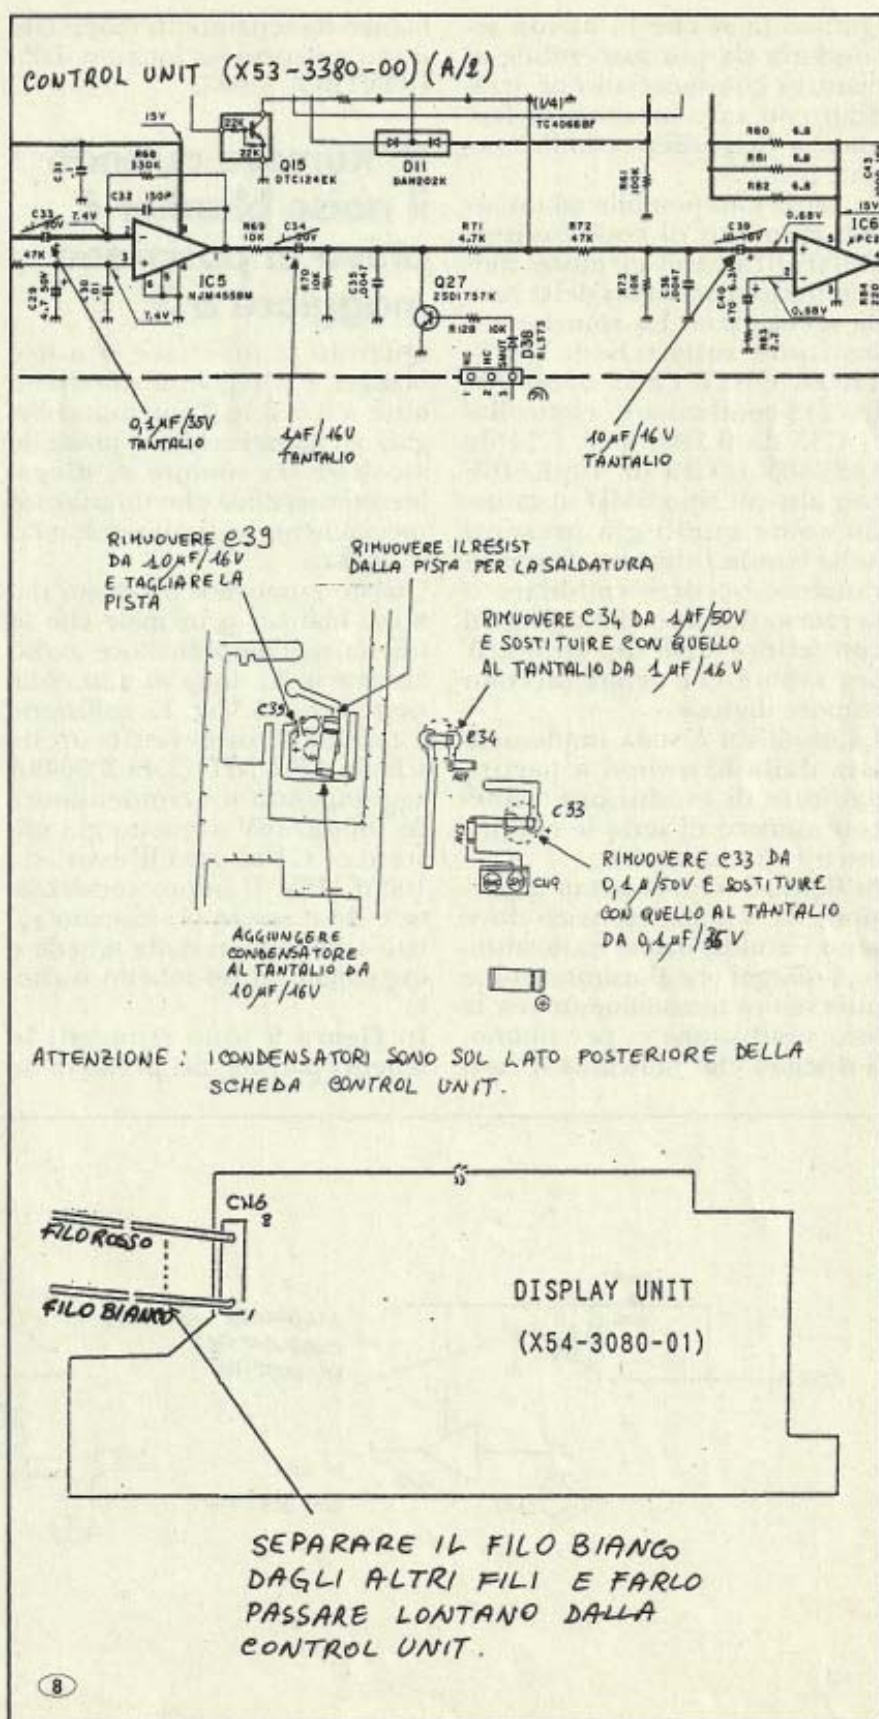 CONTROL UNIT (X53-3380-00) (A/2)
(1/4)
TC4066BF
15V
22K
22K
Q15
DTC124EK
D11
DAN202K
R60 6.8
R81 6.8
R82 6.8
C31
.1
R68
330K
C32 150P
C33
7.4V
R81
100K
15V
C43
IC6
R69
10K
C34
R71
4.7K
R72
47K
C39
0.68V
47K
C29
4.7 50V
C30
.01
IC5
NJM4558M
7.4V
R70
10K
C35
.0047
Q27
2SD1757K
R128 10K
D38
RLS73
R73
10K
C36
.0047
C40
470 6.3V
R83
2.2
0.68V
R84
220
NC
NC
SMUT
1 2 3
0,1µF/35V
TANTALIO
1µF/16V
TANTALIO
10µF/16V
TANTALIO
RIMUOVERE C39
DA 10µF/16V
E TAGLIARE LA
PISTA
RIMUOVERE IL RESIST
DALLA PISTA PER LA SALDATURA
RIMUOVERE C34 DA 1µF/50V
E SOSTITUIRE CON QUELLO
AL TANTALIO DA 1µF/16V
C39
C34
C33
CN9
RIMUOVERE C33 DA
0,1µ/50V E SOSTITUIRE
CON QUELLO AL TANTALIO
DA 0,1µF/35V
AGGIUNGERE
CONDENSATORE
AL TANTALIO DA
10µF/16V
ATTENZIONE: I CONDENSATORI SONO SUL LATO POSTERIORE DELLA
SCHEDA CONTROL UNIT.
CN6
8
FILO ROSSO
FILO BIANCO
1
DISPLAY UNIT
(X54-3080-01)
SEPARARE IL FILO BIANCO
DAGLI ALTRI FILI E FARLO
PASSARE LONTANO DALLA
CONTROL UNIT.
8